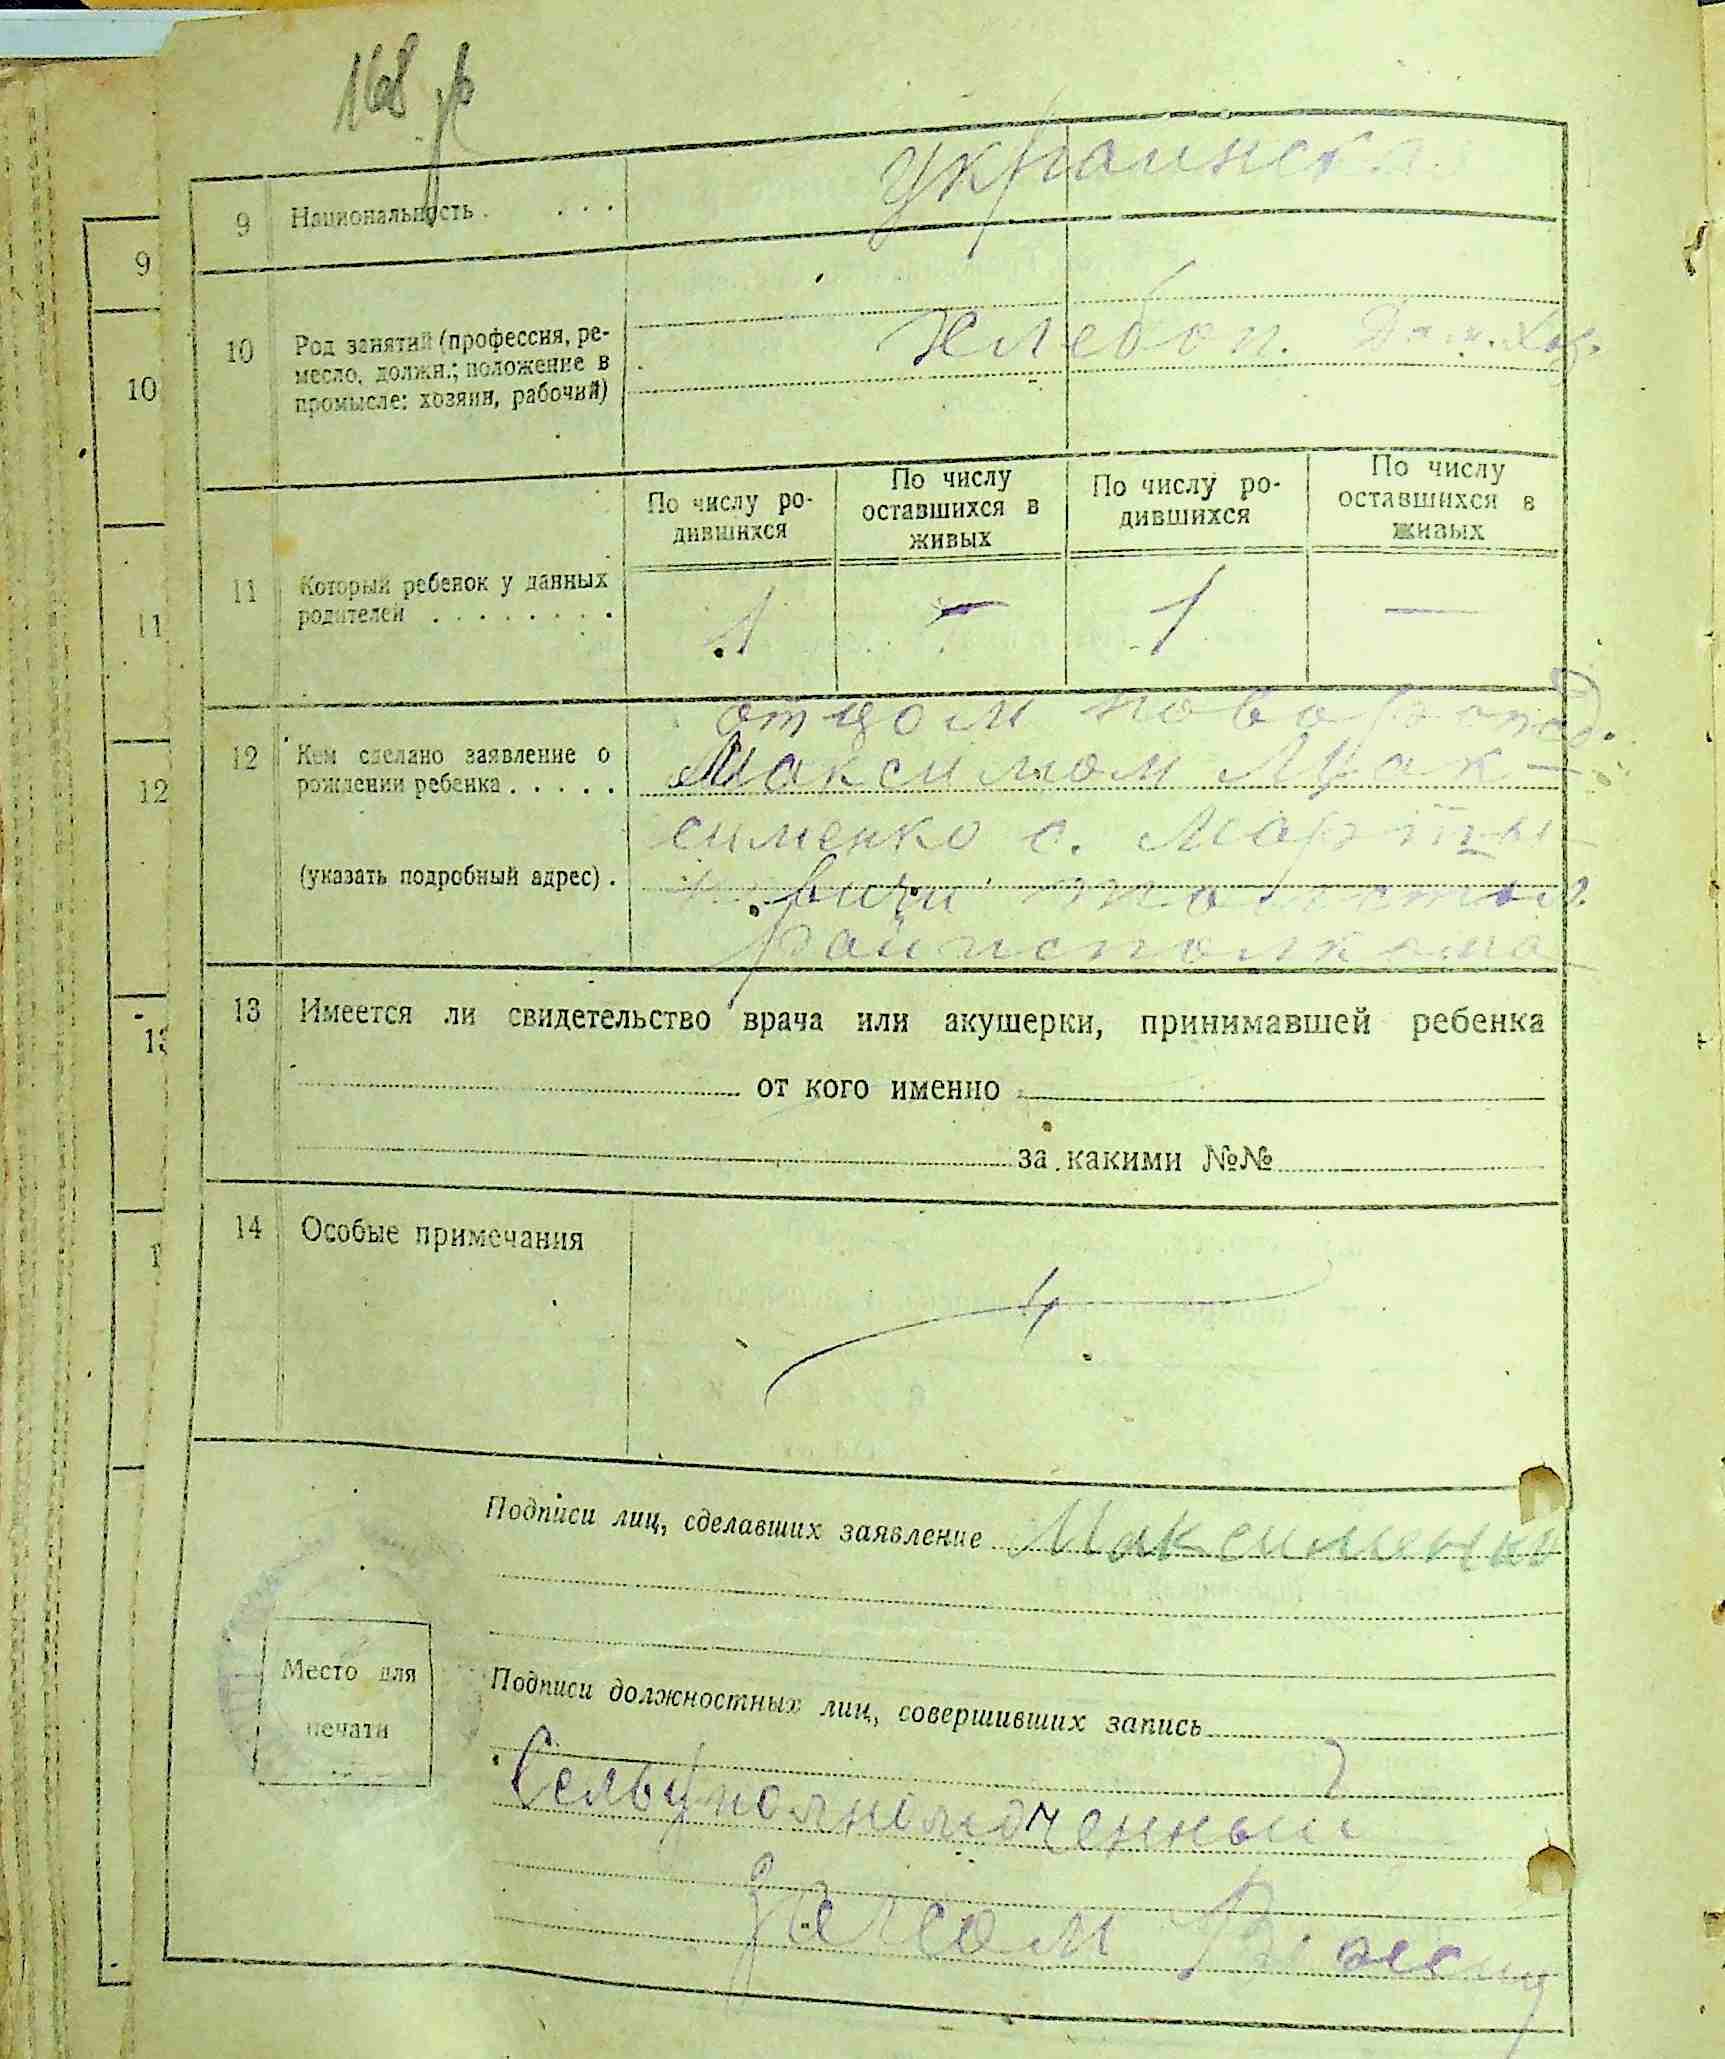 168
9 Национальность . . . . украинск
10 Род занятий (профессия, ре-
месло, должн.; положение в
промысле: хозяин, рабочий)
Хлебоп. Дом. Хоз.
По числу ро-
дившихся
По числу
оставшихся в
живых
По числу ро-
дившихся
По числу
оставшихся в
живых
11 Который ребенок у данных
родителей . . . . . . . .
1 — 1 —
отцом новорожд.
12 Кем сделано заявление о
рождении ребенка . . . . .
Максимом Мак-
сименко с.
(указать подробный адрес) .
райисполкома
13 Имеется ли свидетельство врача или акушерки, принимавшей ребенка
от кого именно
за какими №№
14 Особые примечания
Подписи лиц, сделавших заявление Максименко
Место для
печати
Подписи должностных лиц, совершивших запись
Сельуполномоченный
Загсом
9
10
11
12
13
1